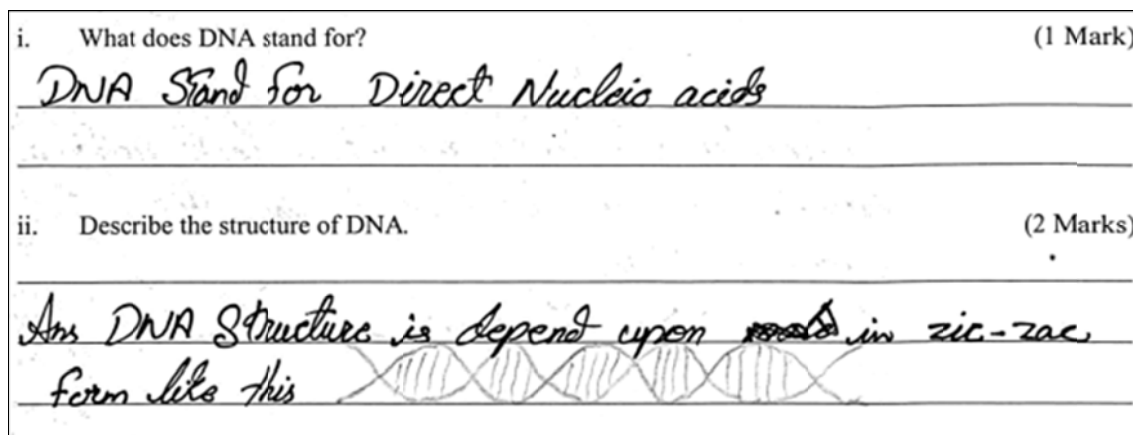 i. What does DNA stand for? (1 Mark)
DNA Stand for Direct Nucleic acids
ii. Describe the structure of DNA. (2 Marks)
Ans DNA Structure is depend upon in zic-zac
form like this